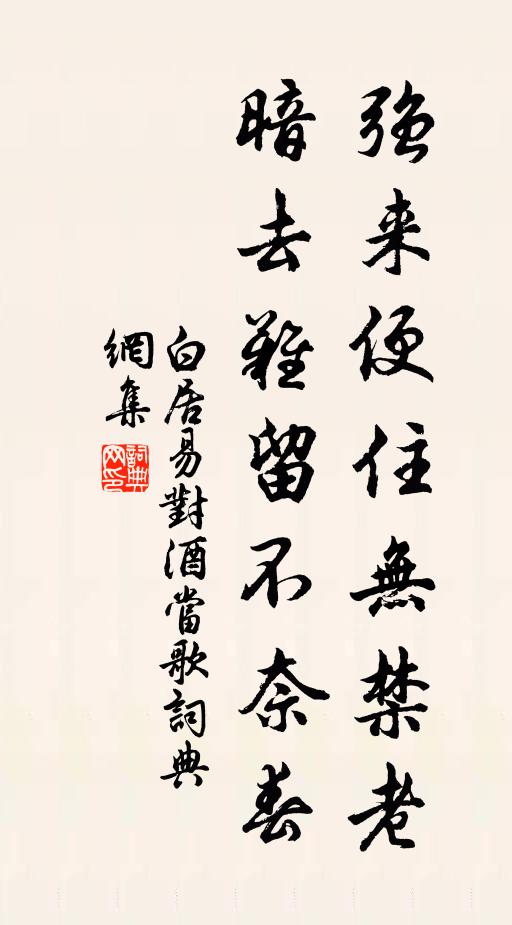 強来便住無禁老
暗去難留不奈春
白居易對酒當歌詞典
網集
詞典
网印